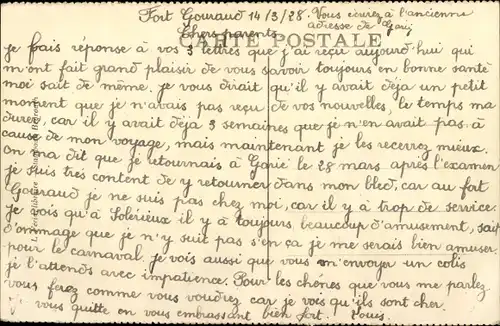 Fort Gouraud 14/3/28. Vous écrirez à l'ancienne
adresse de
Chers parents
CARTE POSTALE
je frais reponse à vos 3 lettres que j'ai reçu aujourd'hui qui
m'ont fait grand plaisir de vous savoir toujours en bonne santé
moi sait de même. Je vous dirait qu'il y avait déja un petit
moment que je n'avais pas reçu de vos nouvelles, le temps ma
durer, car il y avait déja 3 semaines que je n'en avait pas à
cause de mon voyage, mais maintenant je les recevrez mieux.
On ma dit que je retournais à le 28 mars après l'examen
je suis très content de y retourner dans mon bled, car au fort
Gouraud je ne suis pas chez moi, car il y à trop de service.
Je vois qu'à il y à toujours beaucoup d'amusement, sait
d'ommage que je n'y suit pas s'en ça je me serais bien amuser
pour le carnaval. je vois aussi que vous m'envoyer un colis
je l'attends avec impatience. Pour les chénes que vous me parlez
vous ferez comme vous voudrez car je vois qu'ils sont cher.
Je vous quitte en vous embrassant bien fort. Louis.